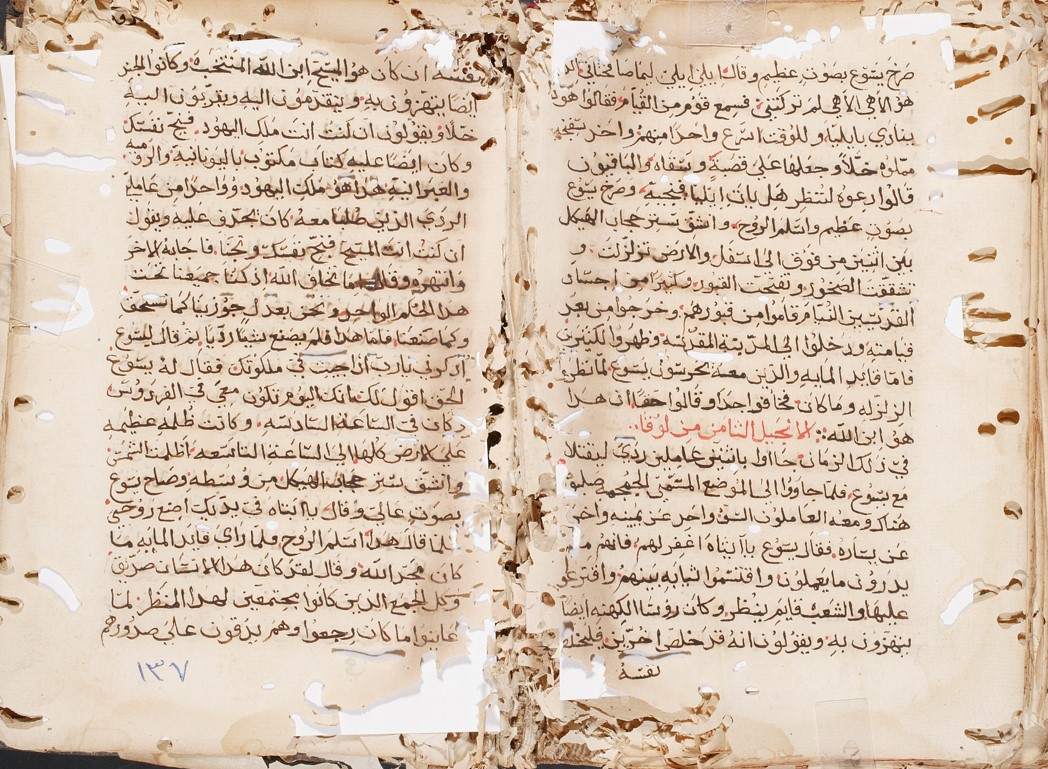 صرخ يسوع بصوت عظيم وقال ايلي ايلي ليما صاختاني الذي
هو الاهي الاهي لم تركتني فسمع قوم من القيام فقالوا هوذا
ينادي بايليه وللوقت اسرع واحدا منهم واخذ سفنجه
مملوه خلا وجعلها على قصبة وسقاه والباقيون
قالوا دعوه لننظر هل ياتي ايليا فينجيه وصرخ يسوع
بصوت عظيم واسلم الروح وانشق ستر حجاب الهيكل
بين اثنين من فوق الى اسفل والارض تزلزلت و
تشققت الصخور وتفتحت القبور وكثيرا من اجساد
القديسين النيام قاموا من قبورهم وخرجوا من بعد
قيامته ودخلوا الى المدينه المقدسه وظهروا لكثيرين
فاما قايد المايه والذين معه يحرسون يسوع لما نظروا
الزلزله وما كان فخافوا جدا وقالوا حقا ان هذا
هو ابن الله الانجيل الثامن من لوقا
في ذلك الزمان جااوا باثنين عاملين ردي ليقتلا
مع يسوع فلما جاووا الى الموضع المسمى الجمجمه صلبوه
هناك ومعه العاملون السو واحد عن يمينه واخر
عن يساره فقال يسوع يا ابتاه اغفر لهم فانهم ما
يدرون ما يعملون واقتسموا ثيابه بينهم واقترعوا
عليها والشعب قايم ينظر وكان روسا الكهنه ايضا
يتهزون به ويقولون انه قد خلص اخرين فليخلص
نفسه
نفسه ان كان هو المسيح ابن الله المنتخب وكانوا الجند
ايضا يتهزون به ويتقدمون اليه ويقربون اليه
خلا ويقولون ان كنت انت ملك اليهود فنج نفسك
وكان ايضا عليه كتاب مكتوب باليونانية والروميه
والعبرانية هذا هو ملك اليهود وواحدا من عاملي
الردي الذين صلبا معه كان يجدف عليه ويقول
ان كنت انت المسيح فنج نفسك ونحنا فاجابه الاخر
وانتهره وقال اما تخاف الله اذ كنا جميعنا تحت
هذا الحكم الواحد ونحن بعدل جوزينا كما نستحق
وكما صنعنا فاما هذا فلم يصنع شيا رديا ثم قال ليسوع
اذكرني يارب اذا جيت في ملكوتك فقال له يسوع
الحق اقول لك انك اليوم تكون معي في الفردوس
وكان في الساعة السادسه وكانت ظلمه عظيمه
على الارض كلها الى الساعة التاسعه اظلمت الشمس
وانشق ستر حجاب الهيكل من وسطه وصاح يسوع
بصوت عالي وقال يا ابتاه في يديك اضع روحي
فلما قال هذا اسلم الروح فلما راى قايد المايه ما
كان مجد الله وقال لقد كان هذا الانسان صديق
وكل الجمع الذين كانوا مجتمعين لهذا المنظر لما
عاينوا ما كان رجعوا وهم يدقون على صدورهم
١٣٧